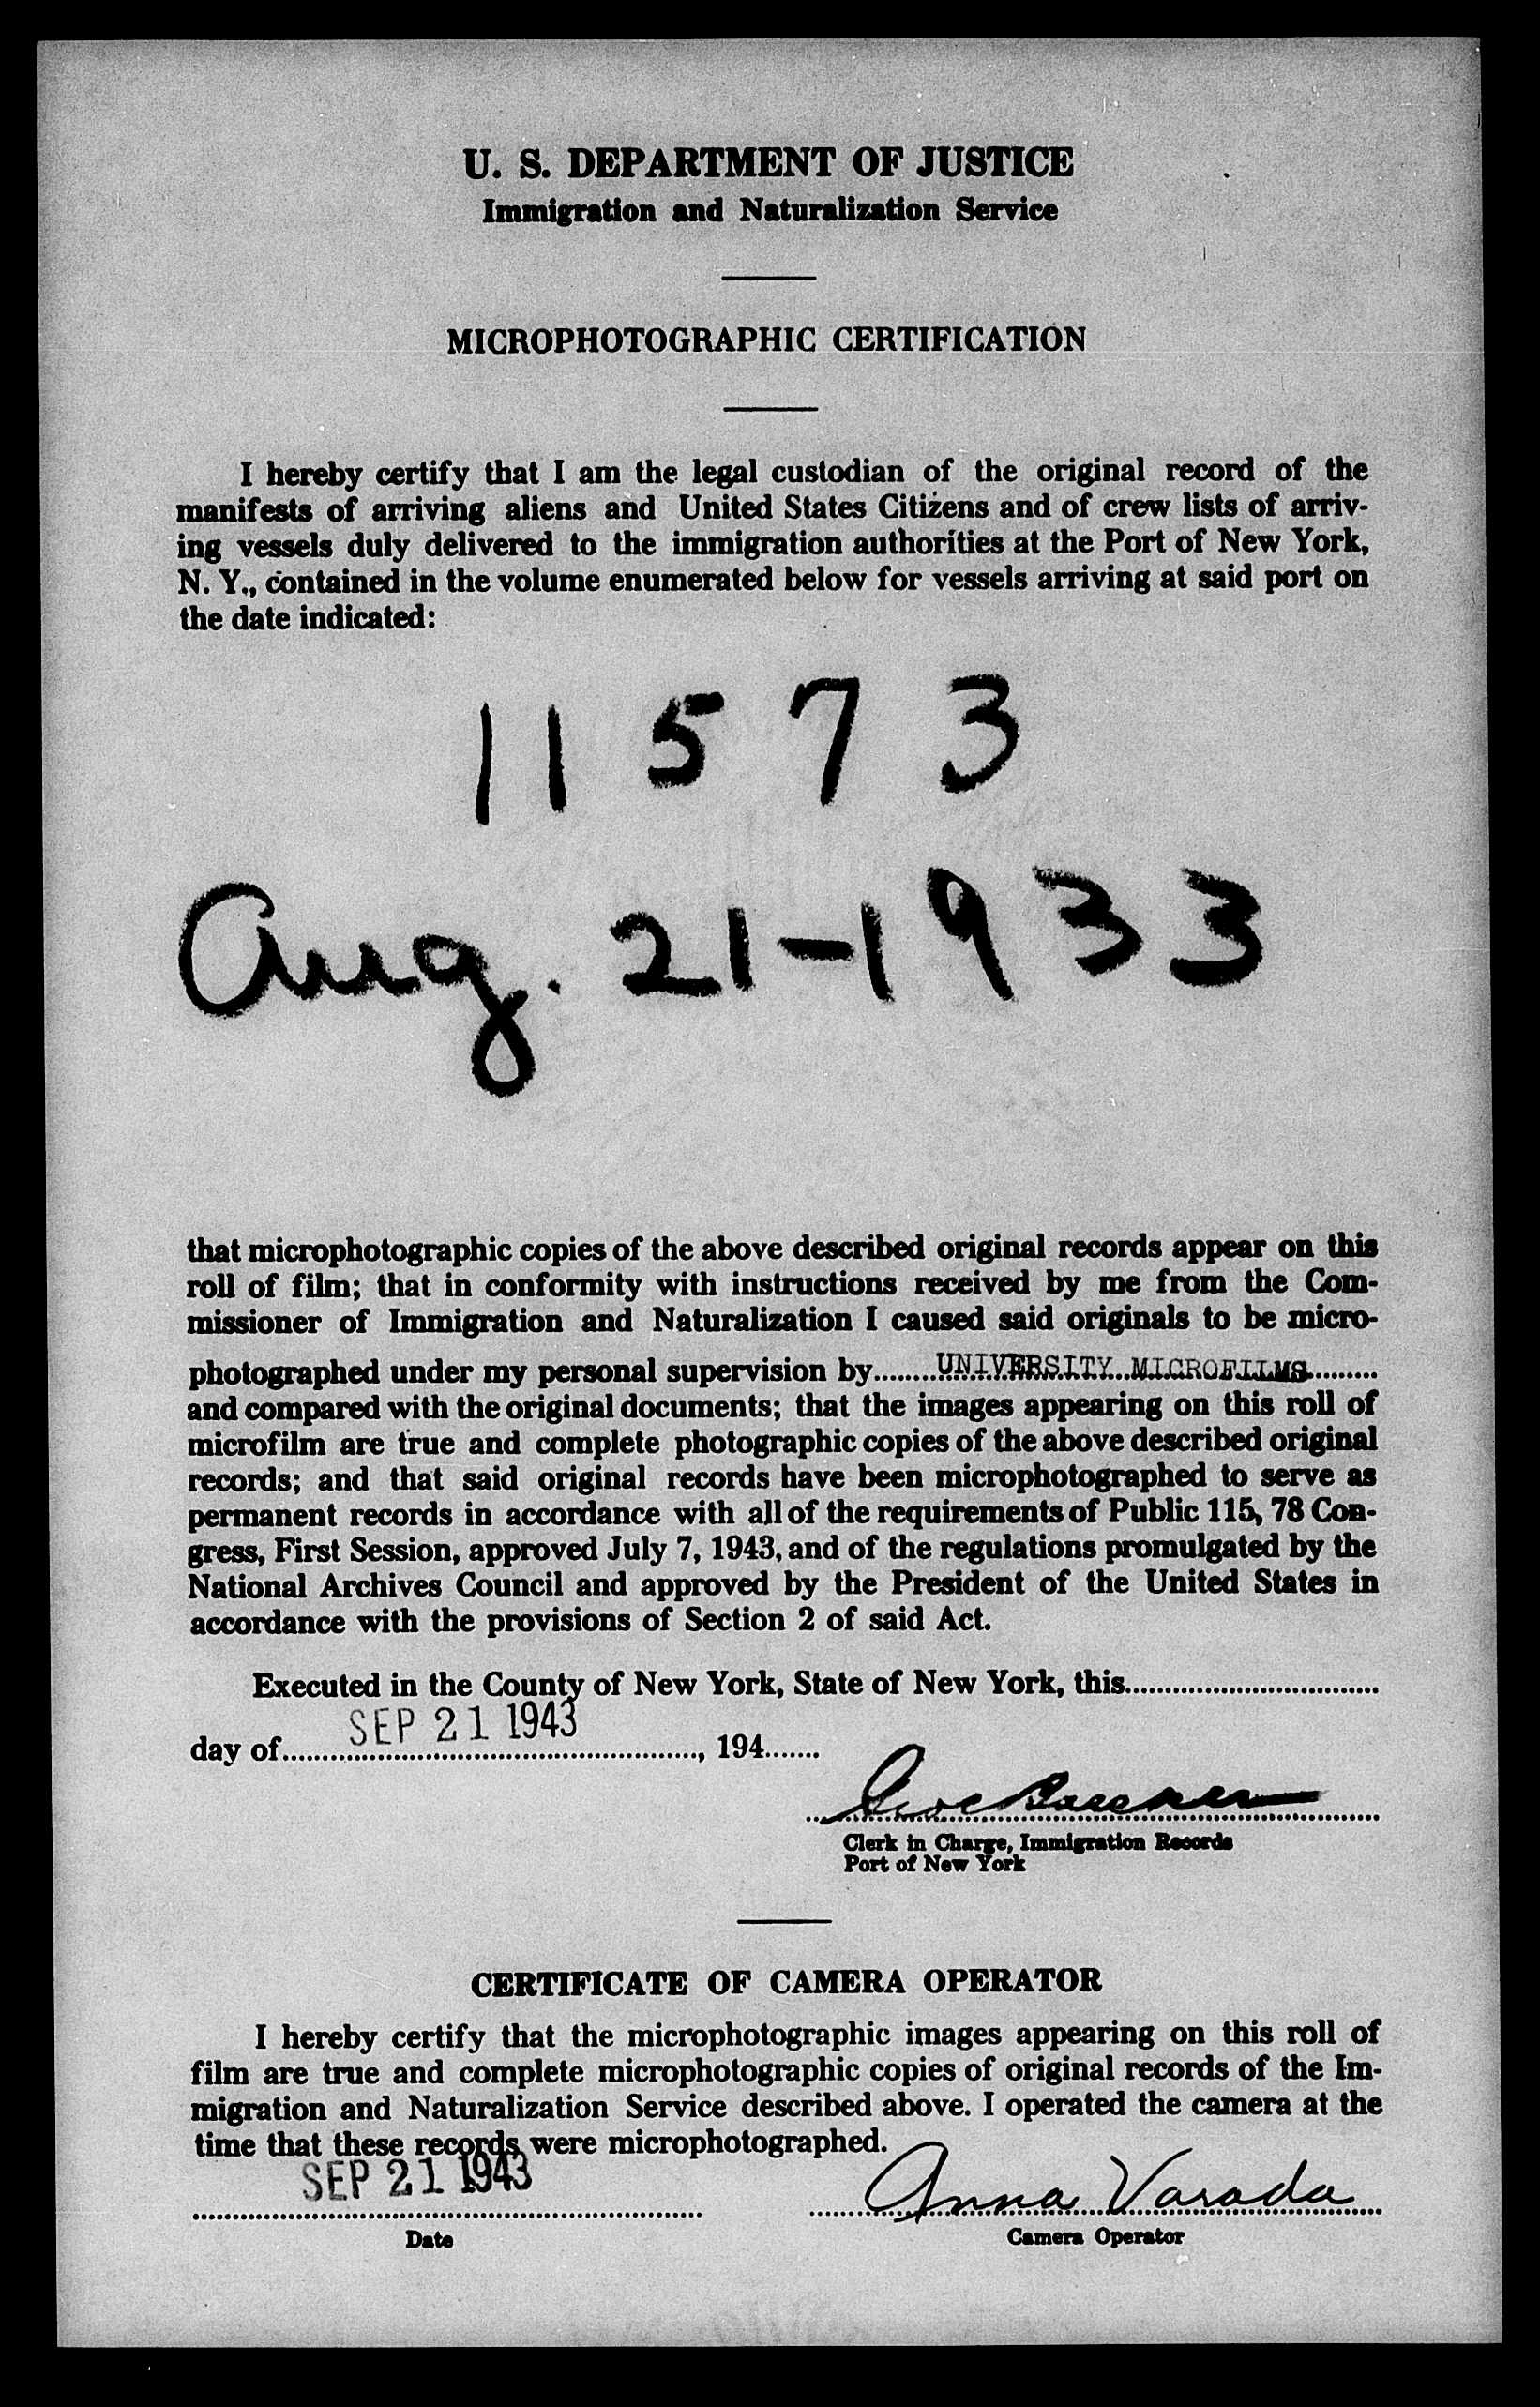 U. S. DEPARTMENT OF JUSTICE
Immigration and Naturalization Service
MICROPHOTOGRAPHIC CERTIFICATION
I hereby certify that I am the legal custodian of the original record of the
manifests of arriving aliens and United States Citizens and of crew lists of arriv-
ing vessels duly delivered to the immigration authorities at the Port of New York,
N. Y., contained in the volume enumerated below for vessels arriving at said port on
the date indicated:
11573
Aug. 21-1933
that microphotographic copies of the above described original records appear on this
roll of film; that in conformity with instructions received by me from the Com-
missioner of Immigration and Naturalization I caused said originals to be micro-
photographed under my personal supervision by........UNIVERSITY MICROFILMS.........
and compared with the original documents; that the images appearing on this roll of
microfilm are true and complete photographic copies of the above described original
records; and that said original records have been microphotographed to serve as
permanent records in accordance with all of the requirements of Public 115, 78 Con-
gress, First Session, approved July 7, 1943, and of the regulations promulgated by the
National Archives Council and approved by the President of the United States in
accordance with the provisions of Section 2 of said Act.
Executed in the County of New York, State of New York, this................................
day of........SEP 21 1943................, 194.......
Clerk in Charge, Immigration Records
Port of New York
CERTIFICATE OF CAMERA OPERATOR
I hereby certify that the microphotographic images appearing on this roll of
film are true and complete microphotographic copies of original records of the Im-
migration and Naturalization Service described above. I operated the camera at the
time that these records were microphotographed.
SEP 21 1943 Anna Varada
Date Camera Operator